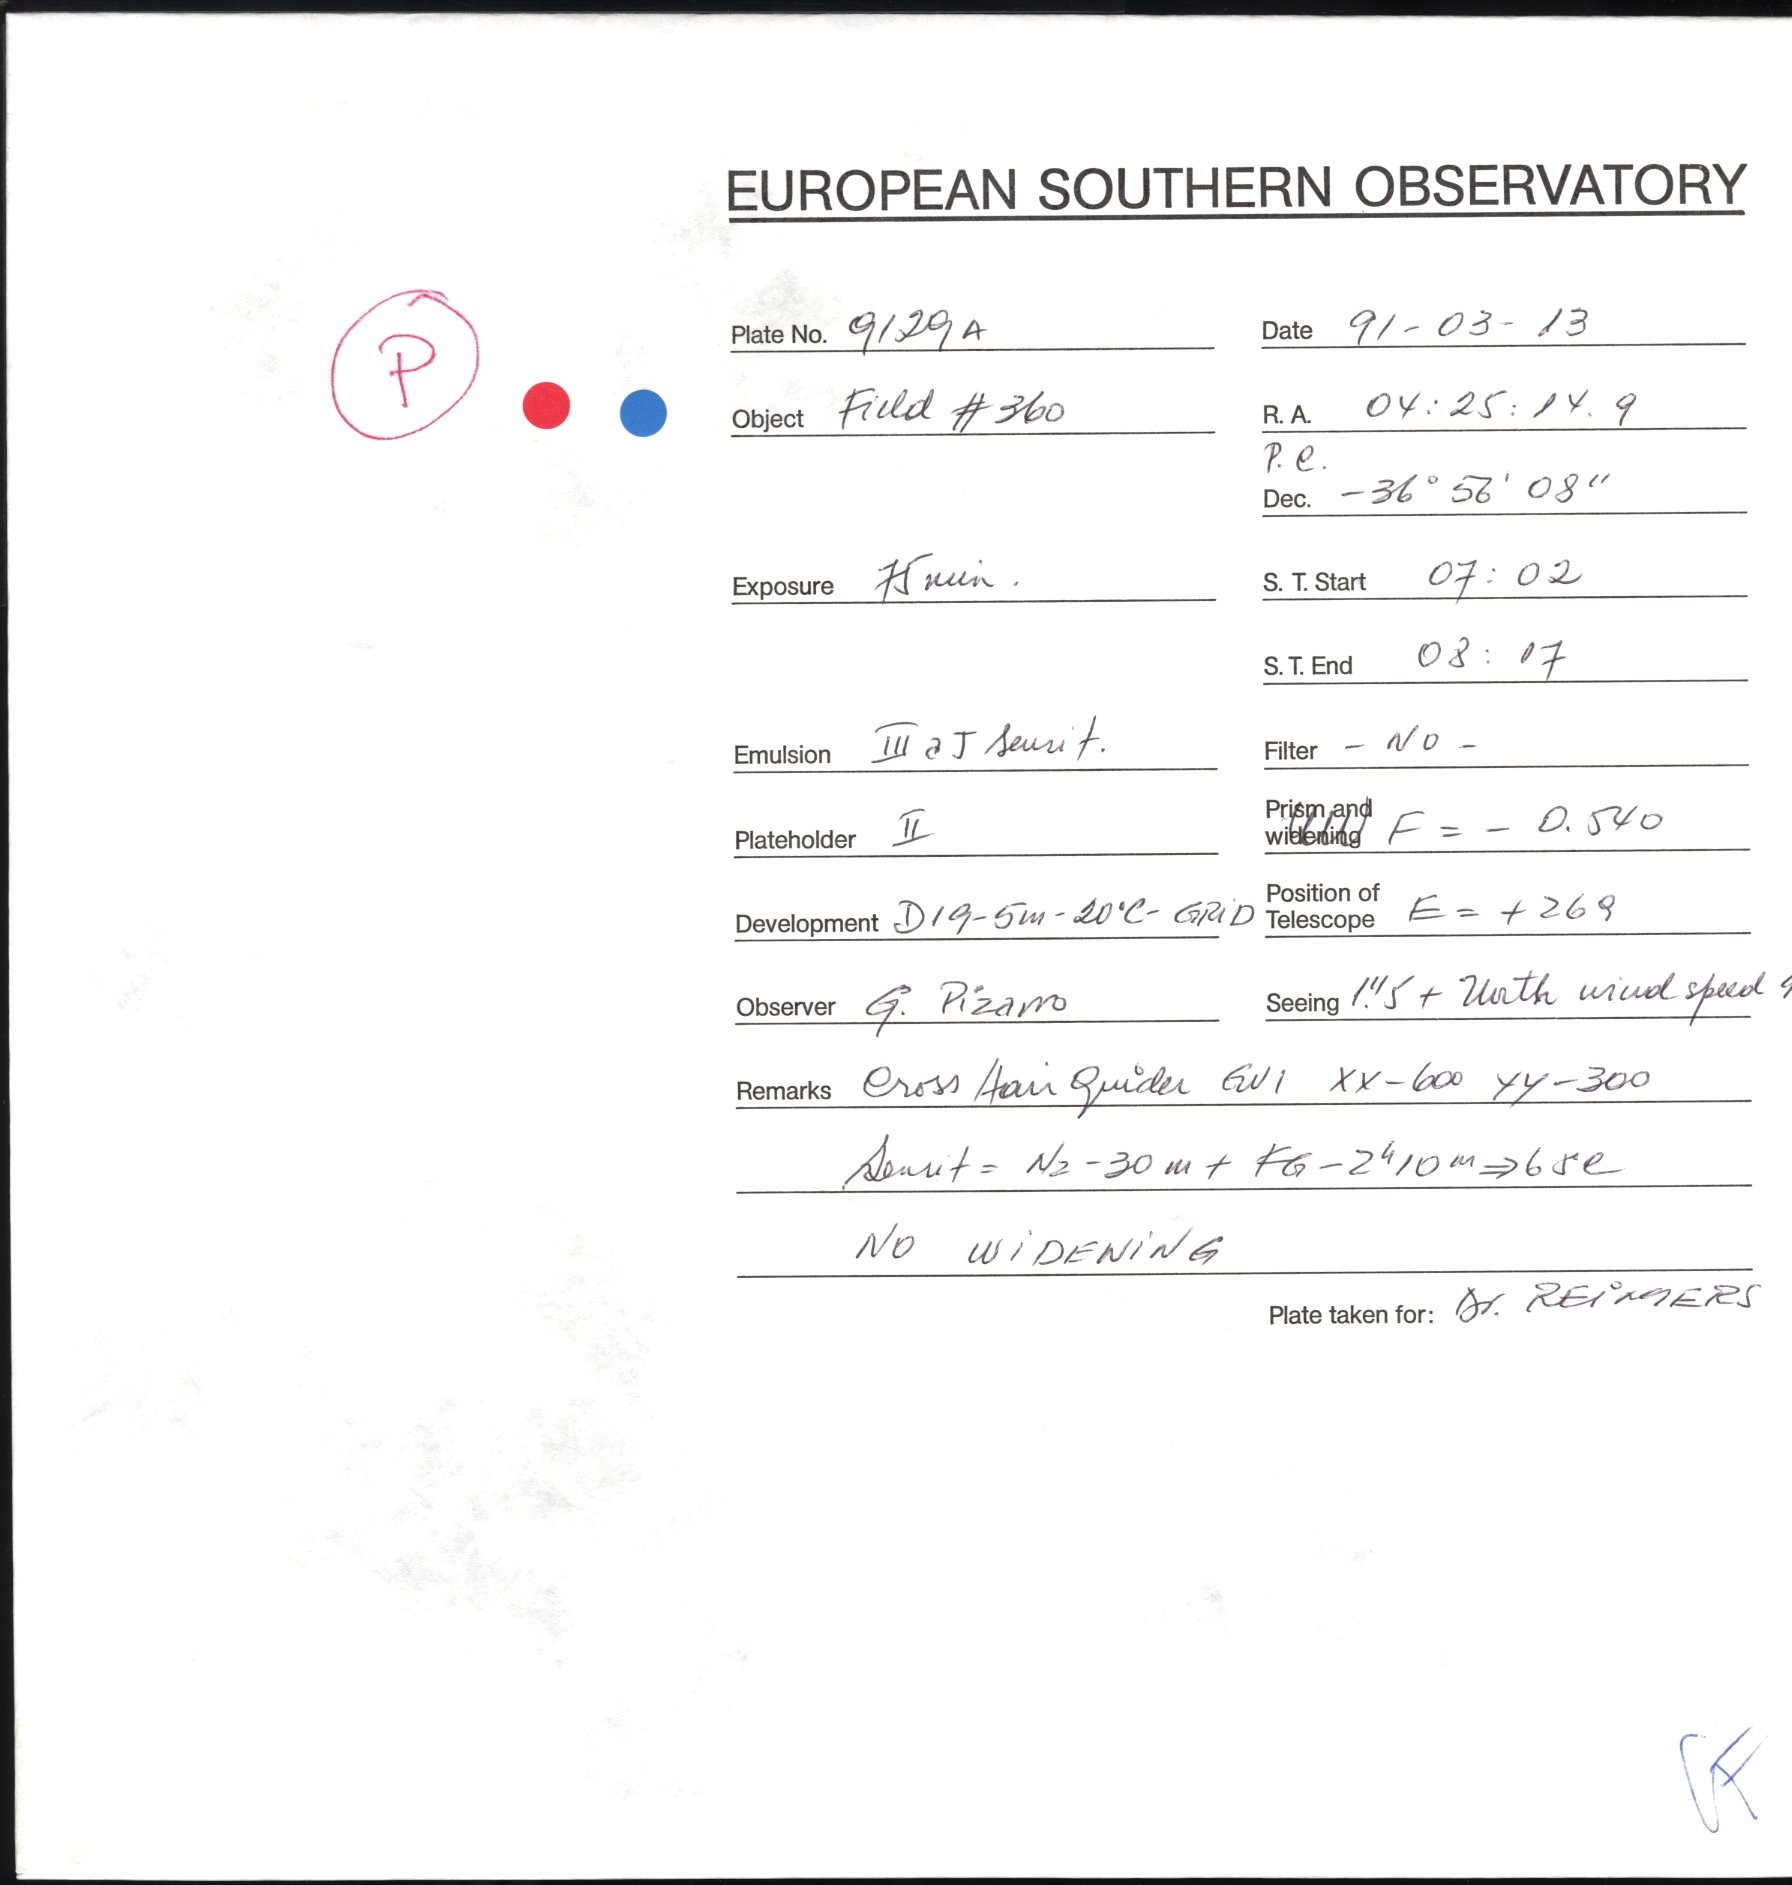 EUROPEAN SOUTHERN OBSERVATORY
P
Plate No. 9129A Date 91-03-13
Object Field #360 R. A. 04:25:14.9
P. C.
Dec. -36° 56' 08"
Exposure 75 min. S. T. Start 07:02
S. T. End 08:17
Emulsion III aJ Sensit. Filter - NO -
Plateholder II Prism and widening F = - 0.540
Development D19-5m-20°C-GRiD Position of Telescope E = +269
Observer G. Pizarro Seeing 1."5 + North wind speed
Remarks Cross Hair Guider GV1 XX-600 YY-300
Sensit = N2-30m + FG-2h10m⇒
NO WiDENiNG
Plate taken for: Dr. REiMERS